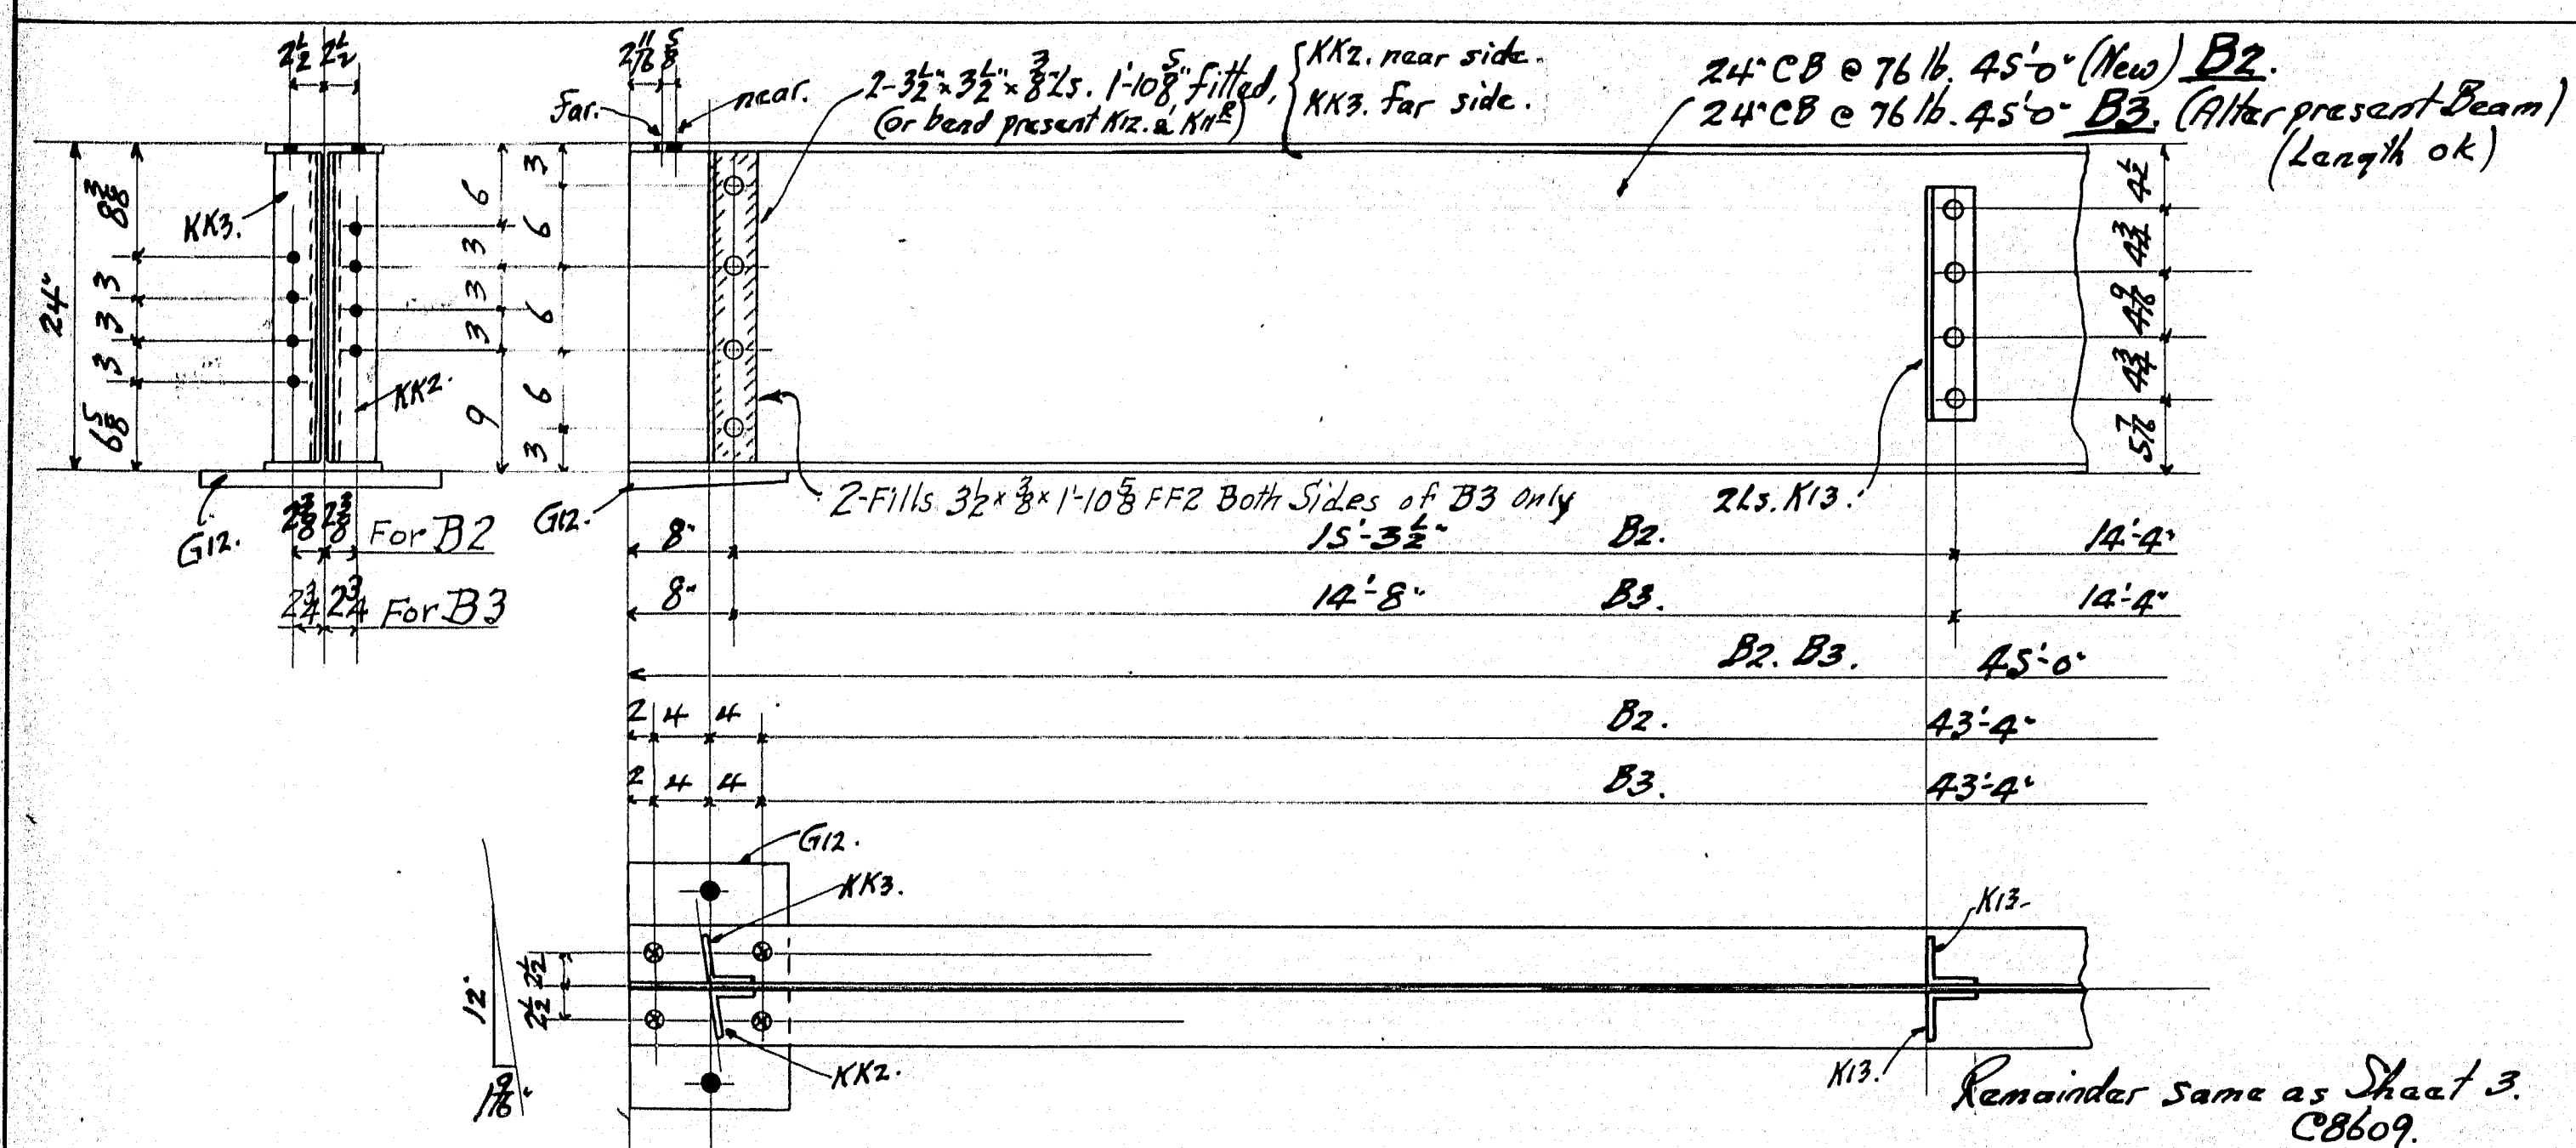 2½ 2½
2 11/16 5/8
Far.
near.
2-3½" x 3½" x 3/8" Ls. 1'-10 5/8" fitted,
(or bend present K12. & K11ᴿ)
KK2. near side.
KK3. far side.
24" CB @ 76 lb. 45'-0" (New) B2.
24" CB @ 76 lb. 45'-0" B3. (Alter present Beam)
(Length ok)
24"
8 3/8
3
3
3
6 5/8
KK3.
KK2.
6
3
3
3
9
3
6
6
6
3
4½
4¾
4 9/16
4¾
5 7/16
G12.
2 3/8 2 3/8 For B2
2¾ 2¾ For B3
G12.
2-Fills 3½ x 3/8 x 1'-10 5/8 FF2 Both Sides of B3 Only
2Ls. K13.
8" 15'-3½" B2. 14'-4"
8" 14'-8" B3. 14'-4"
B2. B3. 45'-0"
2 4 4 B2. 43'-4"
2 4 4 B3. 43'-4"
G12.
KK3.
K13.
12"
2½
2½
1 9/16"
KK2.
K13.
Remainder same as Sheet 3.
C8609.